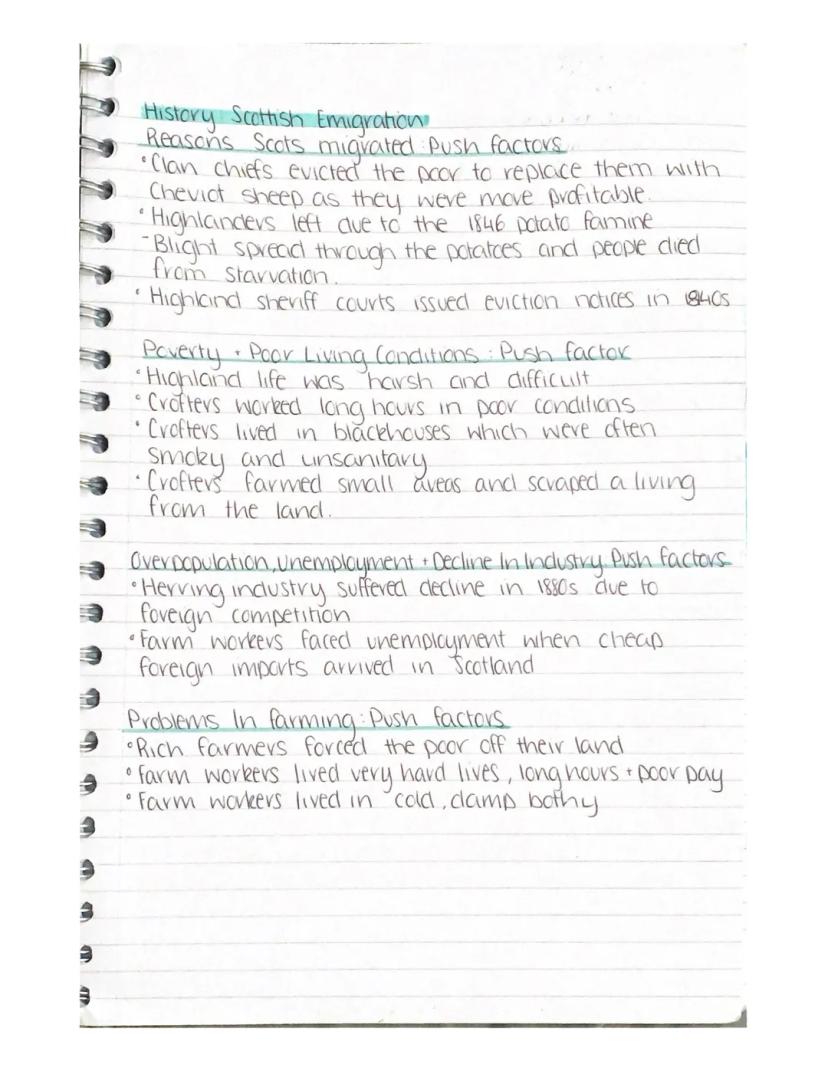 History Scottish Emigration
Reasons Scots migrated: Push factors
• Clan chiefs evicted the poor to replace them with
Cheviot sheep as they were more profitable.
• Highlanders left due to the 1846 potato famine
- Blight spread through the potatoes and people died
from starvation.
• Highland sheriff courts issued eviction notices in 1840s
Poverty + Poor Living Conditions: Push factor
• Highland life was harsh and difficult
• Crofters worked long hours in poor conditions
• Crofters lived in blackhouses which were often
smoky and unsanitary
• Crofters farmed small areas and scraped a living
from the land.
Overpopulation, Unemployment + Decline In Industry: Push factors
• Herring industry suffered decline in 1880s due to
foreign competition
• Farm workers faced unemployment when cheap
foreign imports arrived in Scotland
Problems In farming: Push factors
• Rich farmers forced the poor off their land
• Farm workers lived very hard lives, long hours + poor pay
• Farm workers lived in cold, damp bothy